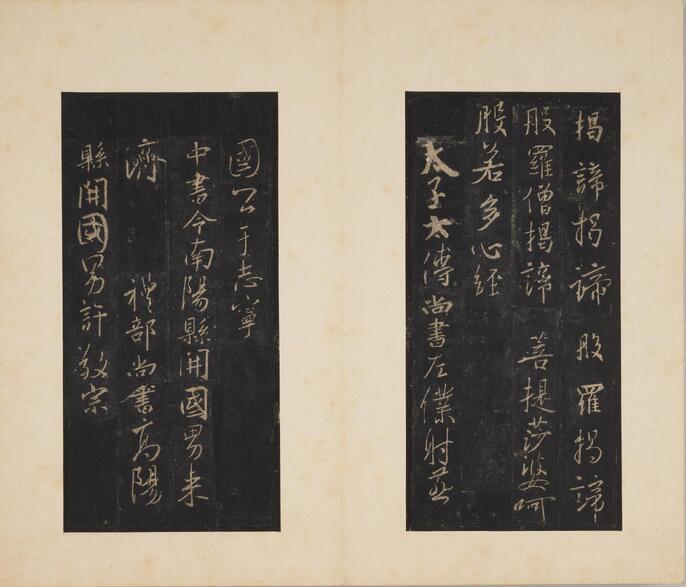 揭諦揭諦般羅揭諦
般羅僧揭諦菩提莎婆呵
般若多心經
太子太傅尚書左僕射燕
國公于志寧
中書令南陽縣開國男来
濟禮部尚書高陽
縣開國男許敬宗